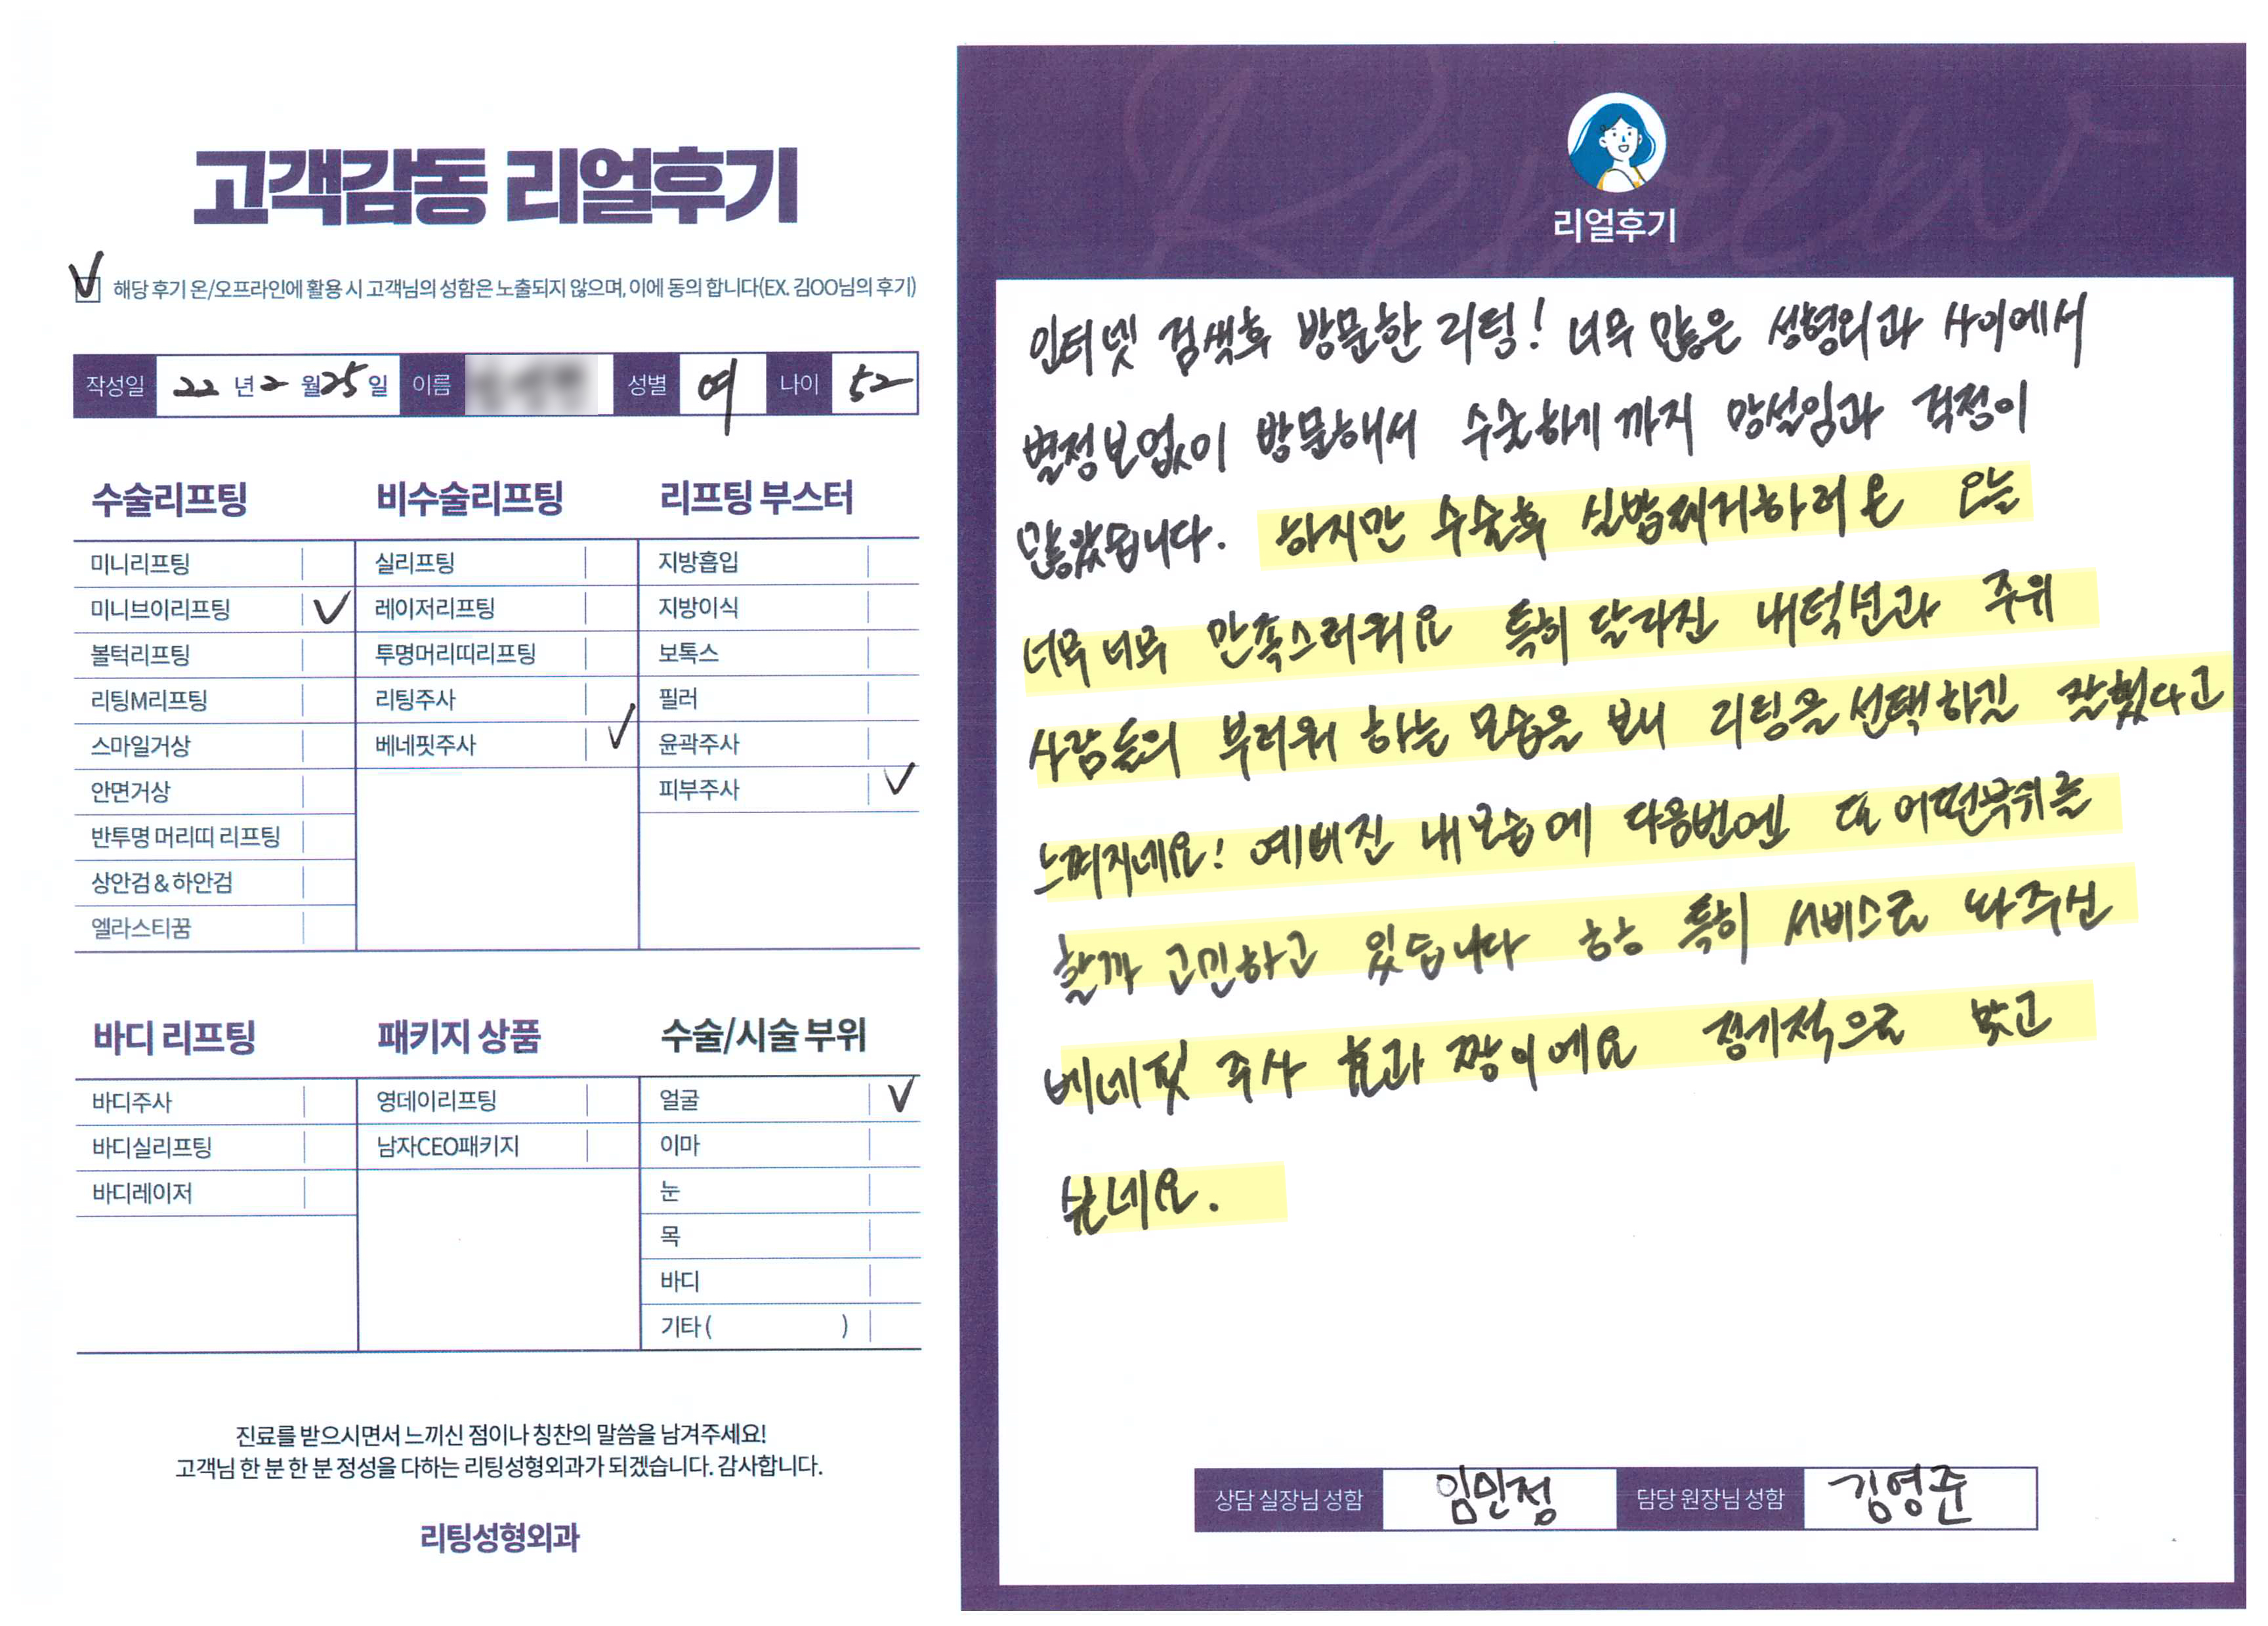 고객감동 리얼후기
해당 후기 온/오프라인에 활용 시 고객님의 성함은 노출되지 않으며, 이에 동의 합니다(EX. 김OO님의 후기)
작성일 22 년 2 월 25 일 이름 성별 여 나이 52
수술리프팅
미니리프팅
미니브이리프팅
볼턱리프팅
리팅M리프팅
스마일거상
안면거상
반투명 머리띠 리프팅
상안검 & 하안검
엘라스티꿈
비수술리프팅
실리프팅
레이저리프팅
투명머리띠리프팅
리팅주사
베네핏주사
리프팅 부스터
지방흡입
지방이식
보톡스
필러
윤곽주사
피부주사
바디 리프팅
바디주사
바디실리프팅
바디레이저
패키지 상품
영데이리프팅
남자CEO패키지
수술/시술 부위
얼굴
이마
눈
목
바디
기타 ( )
진료를 받으시면서 느끼신 점이나 칭찬의 말씀을 남겨주세요!
고객님 한 분 한 분 정성을 다하는 리팅성형외과가 되겠습니다. 감사합니다.
리팅성형외과
Review
리얼후기
인터넷 검색후 방문한 리팅! 너무 많은 성형외과 사이에서
별정보없이 방문해서 수술하기 까지 망설임과 걱정이
많았됩니다. 하지만 수술후 실밥제거하러온 오늘
너무너무 만족스러워요 특히 달라진 내턱선과 주위
사람들의 부러워 하는 모습을 보내 리팅을 선택하길 잘했다고
느껴지네요! 예뻐진 내모습에 다음번엔 또 어떤부위를
할까 고민하고 있습니다 ㅎㅎ 특히 서비스로 놔주신
베네핏 주사 효과 짱이에요 정기적으로 맞고
싶네요.
상담 실장님 성함 임민정 담당 원장님 성함 김영준